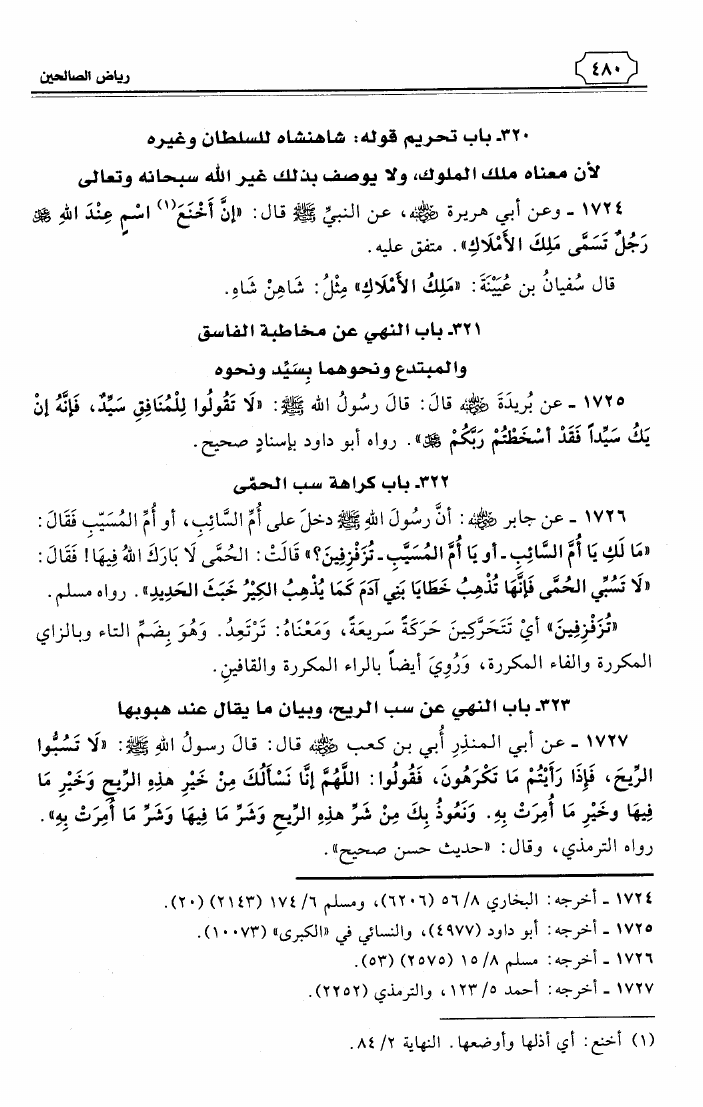 رياض الصالحين
٤٨٠
٣٢٠ـ باب تحريم قوله: شاهنشاه للسلطان وغيره
لأن معناه ملك الملوك، ولا يوصف بذلك غير الله سبحانه وتعالى
١٧٢٤ ـ وعن أبي هريرة رضي الله عنه، عن النبيِّ ﷺ قال: «إنَّ أَخْنَعَ(١) اسْمٍ عِنْدَ اللهِ عز وجل
رَجُلٌ تَسَمَّى مَلِكَ الأَمْلَاكِ». متفق عليه.
قال سُفيانُ بن عُيَيْنَةَ: «مَلِكُ الأَمْلَاكِ» مِثْلُ: شَاهِنْ شَاهِ.
٣٢١ـ باب النهي عن مخاطبة الفاسق
والمبتدع ونحوهما بِسَيِّد ونحوه
١٧٢٥ ـ عن بُريدَةَ رضي الله عنه قالَ: قالَ رسُولُ الله ﷺ: «لَا تَقُولُوا لِلْمُنَافِقِ سَيِّدٌ، فَإِنَّهُ إنْ
يَكُ سَيِّداً فَقَدْ أَسْخَطْتُمْ رَبَّكُمْ عز وجل». رواه أبو داود بإسنادٍ صحيح.
٣٢٢ـ باب كراهة سب الحمّى
١٧٢٦ ـ عن جابر رضي الله عنه: أنَّ رسُولَ اللهِ ﷺ دخلَ على أُمِّ السَّائِبِ، أو أُمِّ المُسَيَّبِ فَقَالَ:
«مَا لَكِ يَا أُمَّ السَّائِبِ ـ أو يَا أُمَّ المُسَيَّبِ ـ تُزَفْزِفِينَ؟» قَالَتْ: الحُمَّى لَا بَارَكَ اللهُ فِيهَا! فَقَالَ:
«لَا تَسُبِّي الحُمَّى فَإِنَّهَا تُذْهِبُ خَطَايَا بَنِي آدَمَ كَمَا يُذْهِبُ الكِيْرُ خَبَثَ الحَدِيدِ». رواه مسلم.
«تُزَفْزِفِينَ» أيْ تَتَحَرَّكِينَ حَرَكَةً سَريعَةً، وَمَعْنَاهُ: تَرْتَعِدُ. وَهُوَ بِضَمِّ التاء وبالزاي
المكررة والفاء المكررة، وَرُوِيَ أيضاً بالراء المكررة والقافينِ.
٣٢٣ـ باب النهي عن سب الريح، وبيان ما يقال عند هبوبها
١٧٢٧ ـ عن أبي المنذِرِ أُبي بن كعب رضي الله عنه قال: قالَ رسولُ اللهِ ﷺ: «لَا تَسُبُّوا
الرِّيحَ، فَإِذَا رَأَيْتُمْ مَا تَكْرَهُونَ، فَقُولُوا: اللَّهُمَّ إنَّا نَسْأَلُكَ مِنْ خَيْرِ هذِهِ الرِّيحِ وَخَيْرِ مَا
فِيهَا وخَيْرِ مَا أُمِرَتْ بِهِ. وَنَعُوذُ بِكَ مِنْ شَرِّ هذِهِ الرِّيحِ وَشَرِّ مَا فِيهَا وَشَرِّ مَا أُمِرَتْ بِهِ».
رواه الترمذي، وقال: «حديث حسن صحيح».
١٧٢٤ ـ أخرجه: البخاري ٨/ ٥٦ (٦٢٠٦)، ومسلم ٦/ ١٧٤ (٢١٤٣) (٢٠).
١٧٢٥ ـ أخرجه: أبو داود (٤٩٧٧)، والنسائي في «الكبرى» (١٠٠٧٣).
١٧٢٦ ـ أخرجه: مسلم ٨/ ١٥ (٢٥٧٥) (٥٣).
١٧٢٧ ـ أخرجه: أحمد ٥/ ١٢٣، والترمذي (٢٢٥٢).
(١) أخنع: أي أذلها وأوضعها. النهاية ٢/ ٨٤.